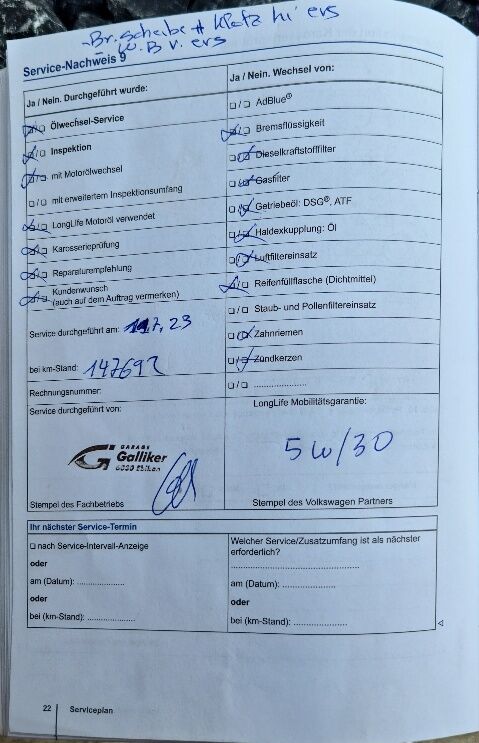 - Br. Scheibe + Klotz hi ers
B v. ers
Service-Nachweis 9
Ja / Nein. Durchgeführt wurde:
Ölwechsel-Service
Inspektion
mit Motorölwechsel
mit erweitertem Inspektionsumfang
LongLife Motoröl verwendet
Karosserieprüfung
Reparaturempfehlung
Kundenwunsch
(auch auf dem Auftrag vermerken)
Service durchgeführt am: 7, 23
bei km-Stand: 147692
Rechnungsnummer:
Service durchgeführt von:
GARAGE
Galliker
6030 Ebikon
Stempel des Fachbetriebs
Ja / Nein. Wechsel von:
AdBlue®
Bremsflüssigkeit
Dieselkraftstofffilter
Gasfilter
Getriebeöl: DSG®, ATF
Haldexkupplung: Öl
Luftfiltereinsatz
Reifenfüllflasche (Dichtmittel)
Staub- und Pollenfiltereinsatz
Zahnriemen
Zündkerzen
/ ....................
LongLife Mobilitätsgarantie:
5W/30
Stempel des Volkswagen Partners
Ihr nächster Service-Termin
nach Service-Intervall-Anzeige
oder
am (Datum): ..................
oder
bei (km-Stand): ..................
Welcher Service/Zusatzumfang ist als nächster
erforderlich?
................................................
am (Datum): ..................
oder
bei (km-Stand): ..................
22 Serviceplan